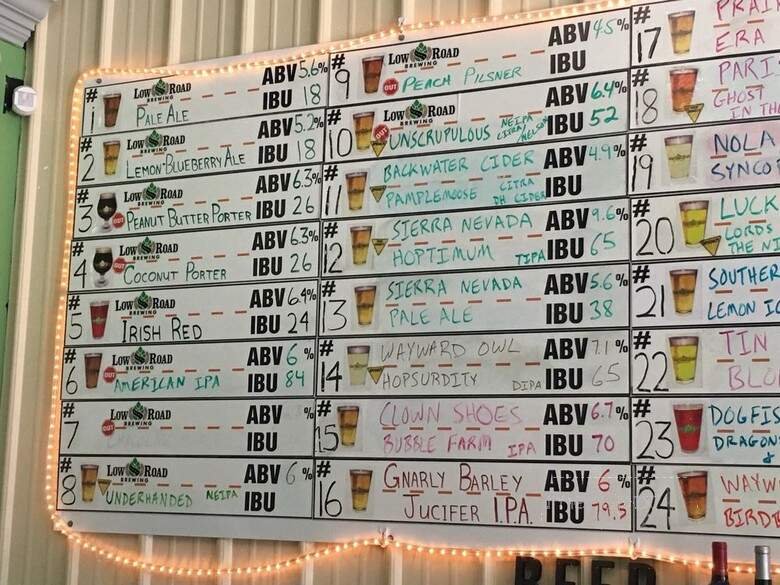 #1 LOW ROAD BREWING ABV 5.6%
PALE ALE IBU 18
#2 LOW ROAD BREWING ABV 5.2%
LEMON BLUEBERRY ALE IBU 18
#3 LOW ROAD BREWING ABV 6.3%
OUT PEANUT BUTTER PORTER IBU 26
#4 LOW ROAD BREWING ABV 6.3%
OUT COCONUT PORTER IBU 26
#5 LOW ROAD BREWING ABV 6.4%
IRISH RED IBU 24
#6 LOW ROAD BREWING ABV 6%
OUT AMERICAN IPA IBU 84
#7 LOW ROAD BREWING ABV %
OUT IBU
#8 LOW ROAD BREWING ABV 6%
UNDERHANDED NEIPA IBU
#9 LOW ROAD BREWING ABV 4.5%
OUT PEACH PILSNER IBU
#10 LOW ROAD BREWING ABV 6.4%
OUT UNSCRUPULOUS NEIPA CITRA/NELSON IBU 52
#11 BACKWATER CIDER ABV 4.9%
PAMPLEMOOSE CITRA DH CIDER IBU
#12 SIERRA NEVADA ABV 9.6%
HOPTIMUM TIPA IBU 65
#13 SIERRA NEVADA ABV 5.6%
PALE ALE IBU 38
#14 WAYWARD OWL ABV 7.1%
HOPSURDITY DIPA IBU 65
#15 CLOWN SHOES ABV 6.7%
BUBBLE FARM IPA IBU 70
#16 GNARLY BARLEY ABV 6%
JUCIFER I.P.A. IBU 79.5
#17 PRAI
ERA
#18 PARI
GHOST IN TH
#19 NOLA
SYNCO
#20 LUCK
LORDS
THE NI
#21 SOUTHER
LEMON IC
#22 TIN
BLO
#23 DOGFIS
DRAGON
&
#24 WAYW
BIRDB
BEER